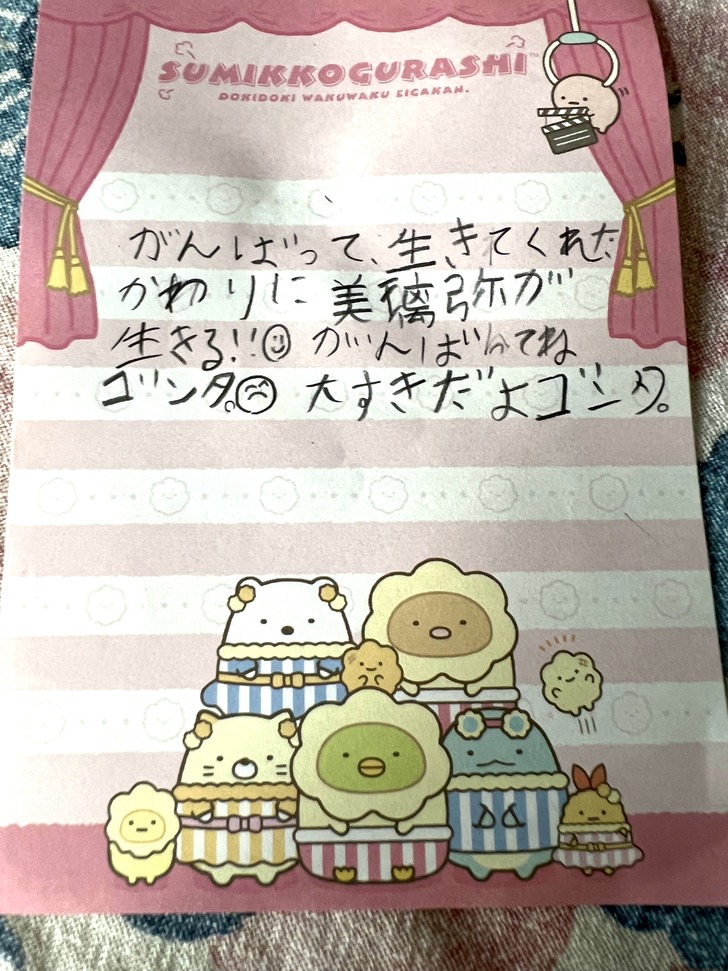 SUMIKKOGURASHI™
DOKIDOKI WAKUWAKU EIGAKAN.
がんばって、生きてくれた
かわりに 美璃弥が
生きる!!がんばってね
ゴンタ。大すきだよゴンタ。